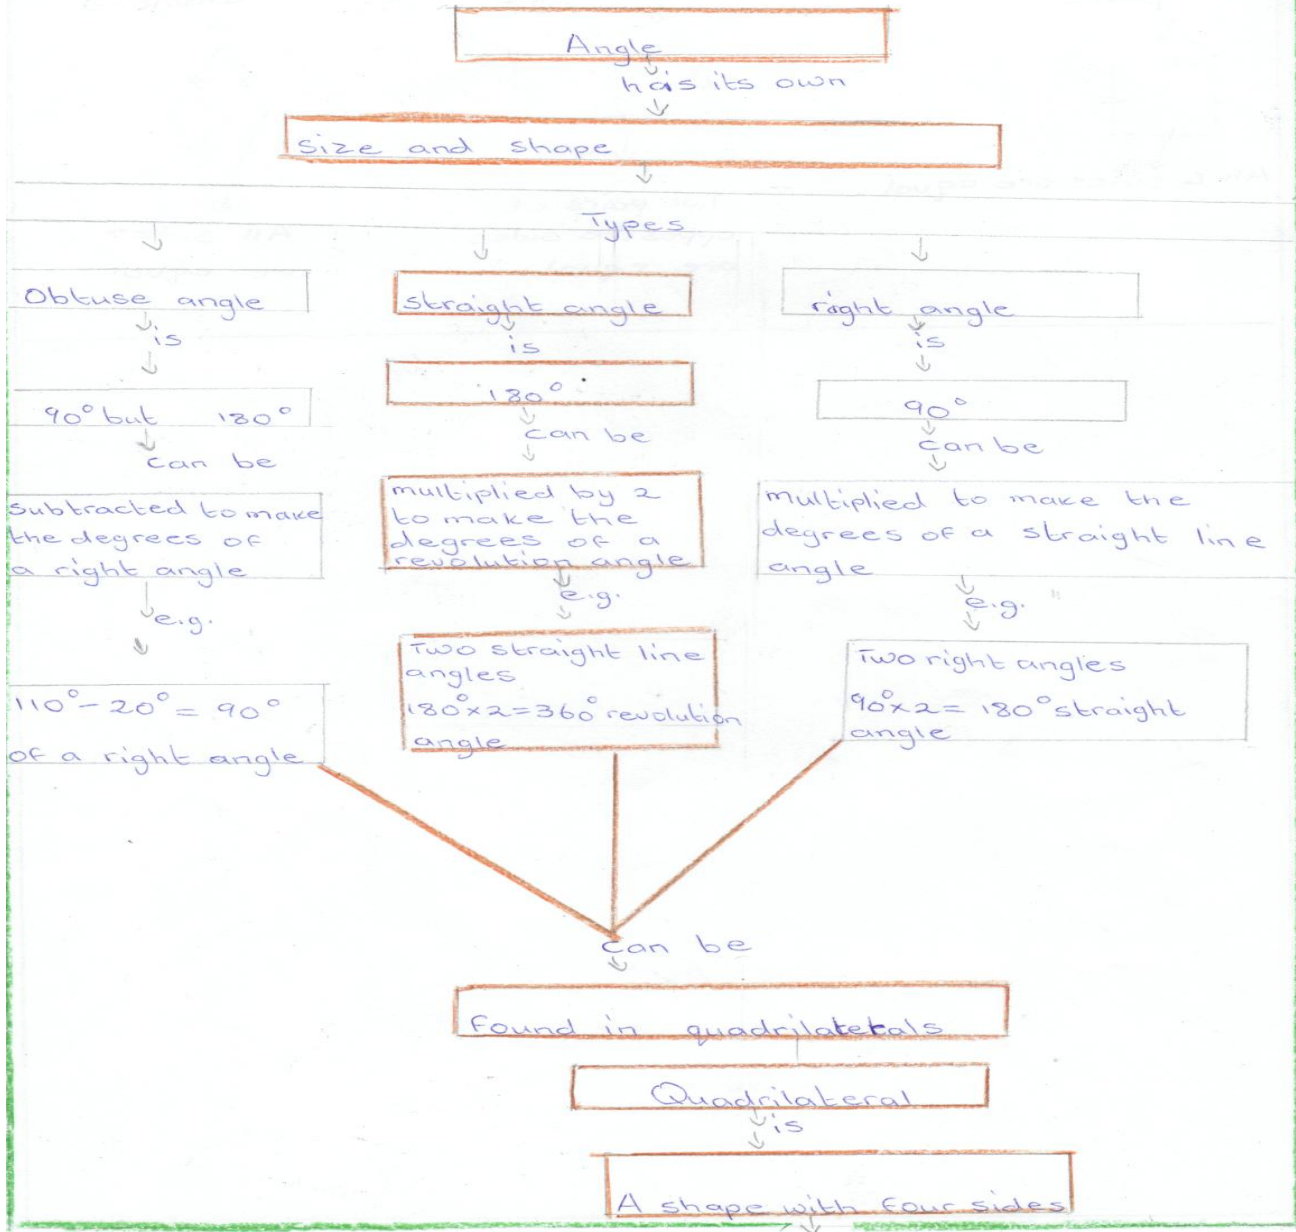 Angle
has its own
size and shape
Types
Obtuse angle
is
90° but 180°
can be
subtracted to make
the degrees of
a right angle
e.g.
110° - 20° = 90°
of a right angle
straight angle
is
180°
can be
multiplied by 2
to make the
degrees of a
revolution angle
e.g.
Two straight line
angles
180°x2=360° revolution
angle
right angle
is
90°
can be
multiplied to make the
degrees of a straight line
angle
e.g.
Two right angles
90°x2= 180° straight
angle
can be
Found in quadrilaterals
Quadrilateral
is
A shape with four sides